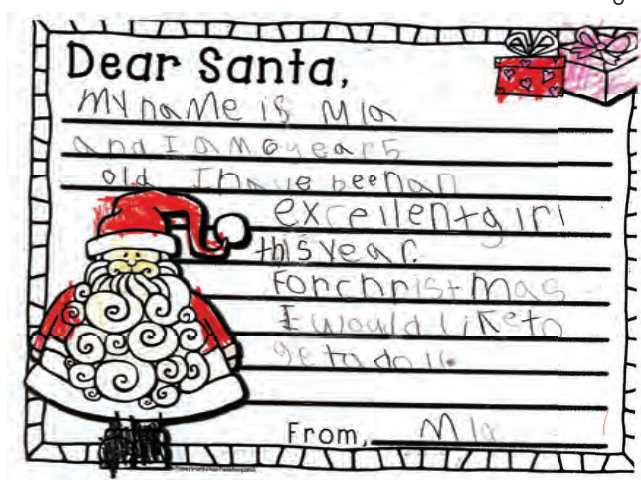 Dear Santa,
My name is Mia
and I am 6 years
old I have been an
excellent girl
this year.
For christmas
I would like to
get a doll.
From, Mia